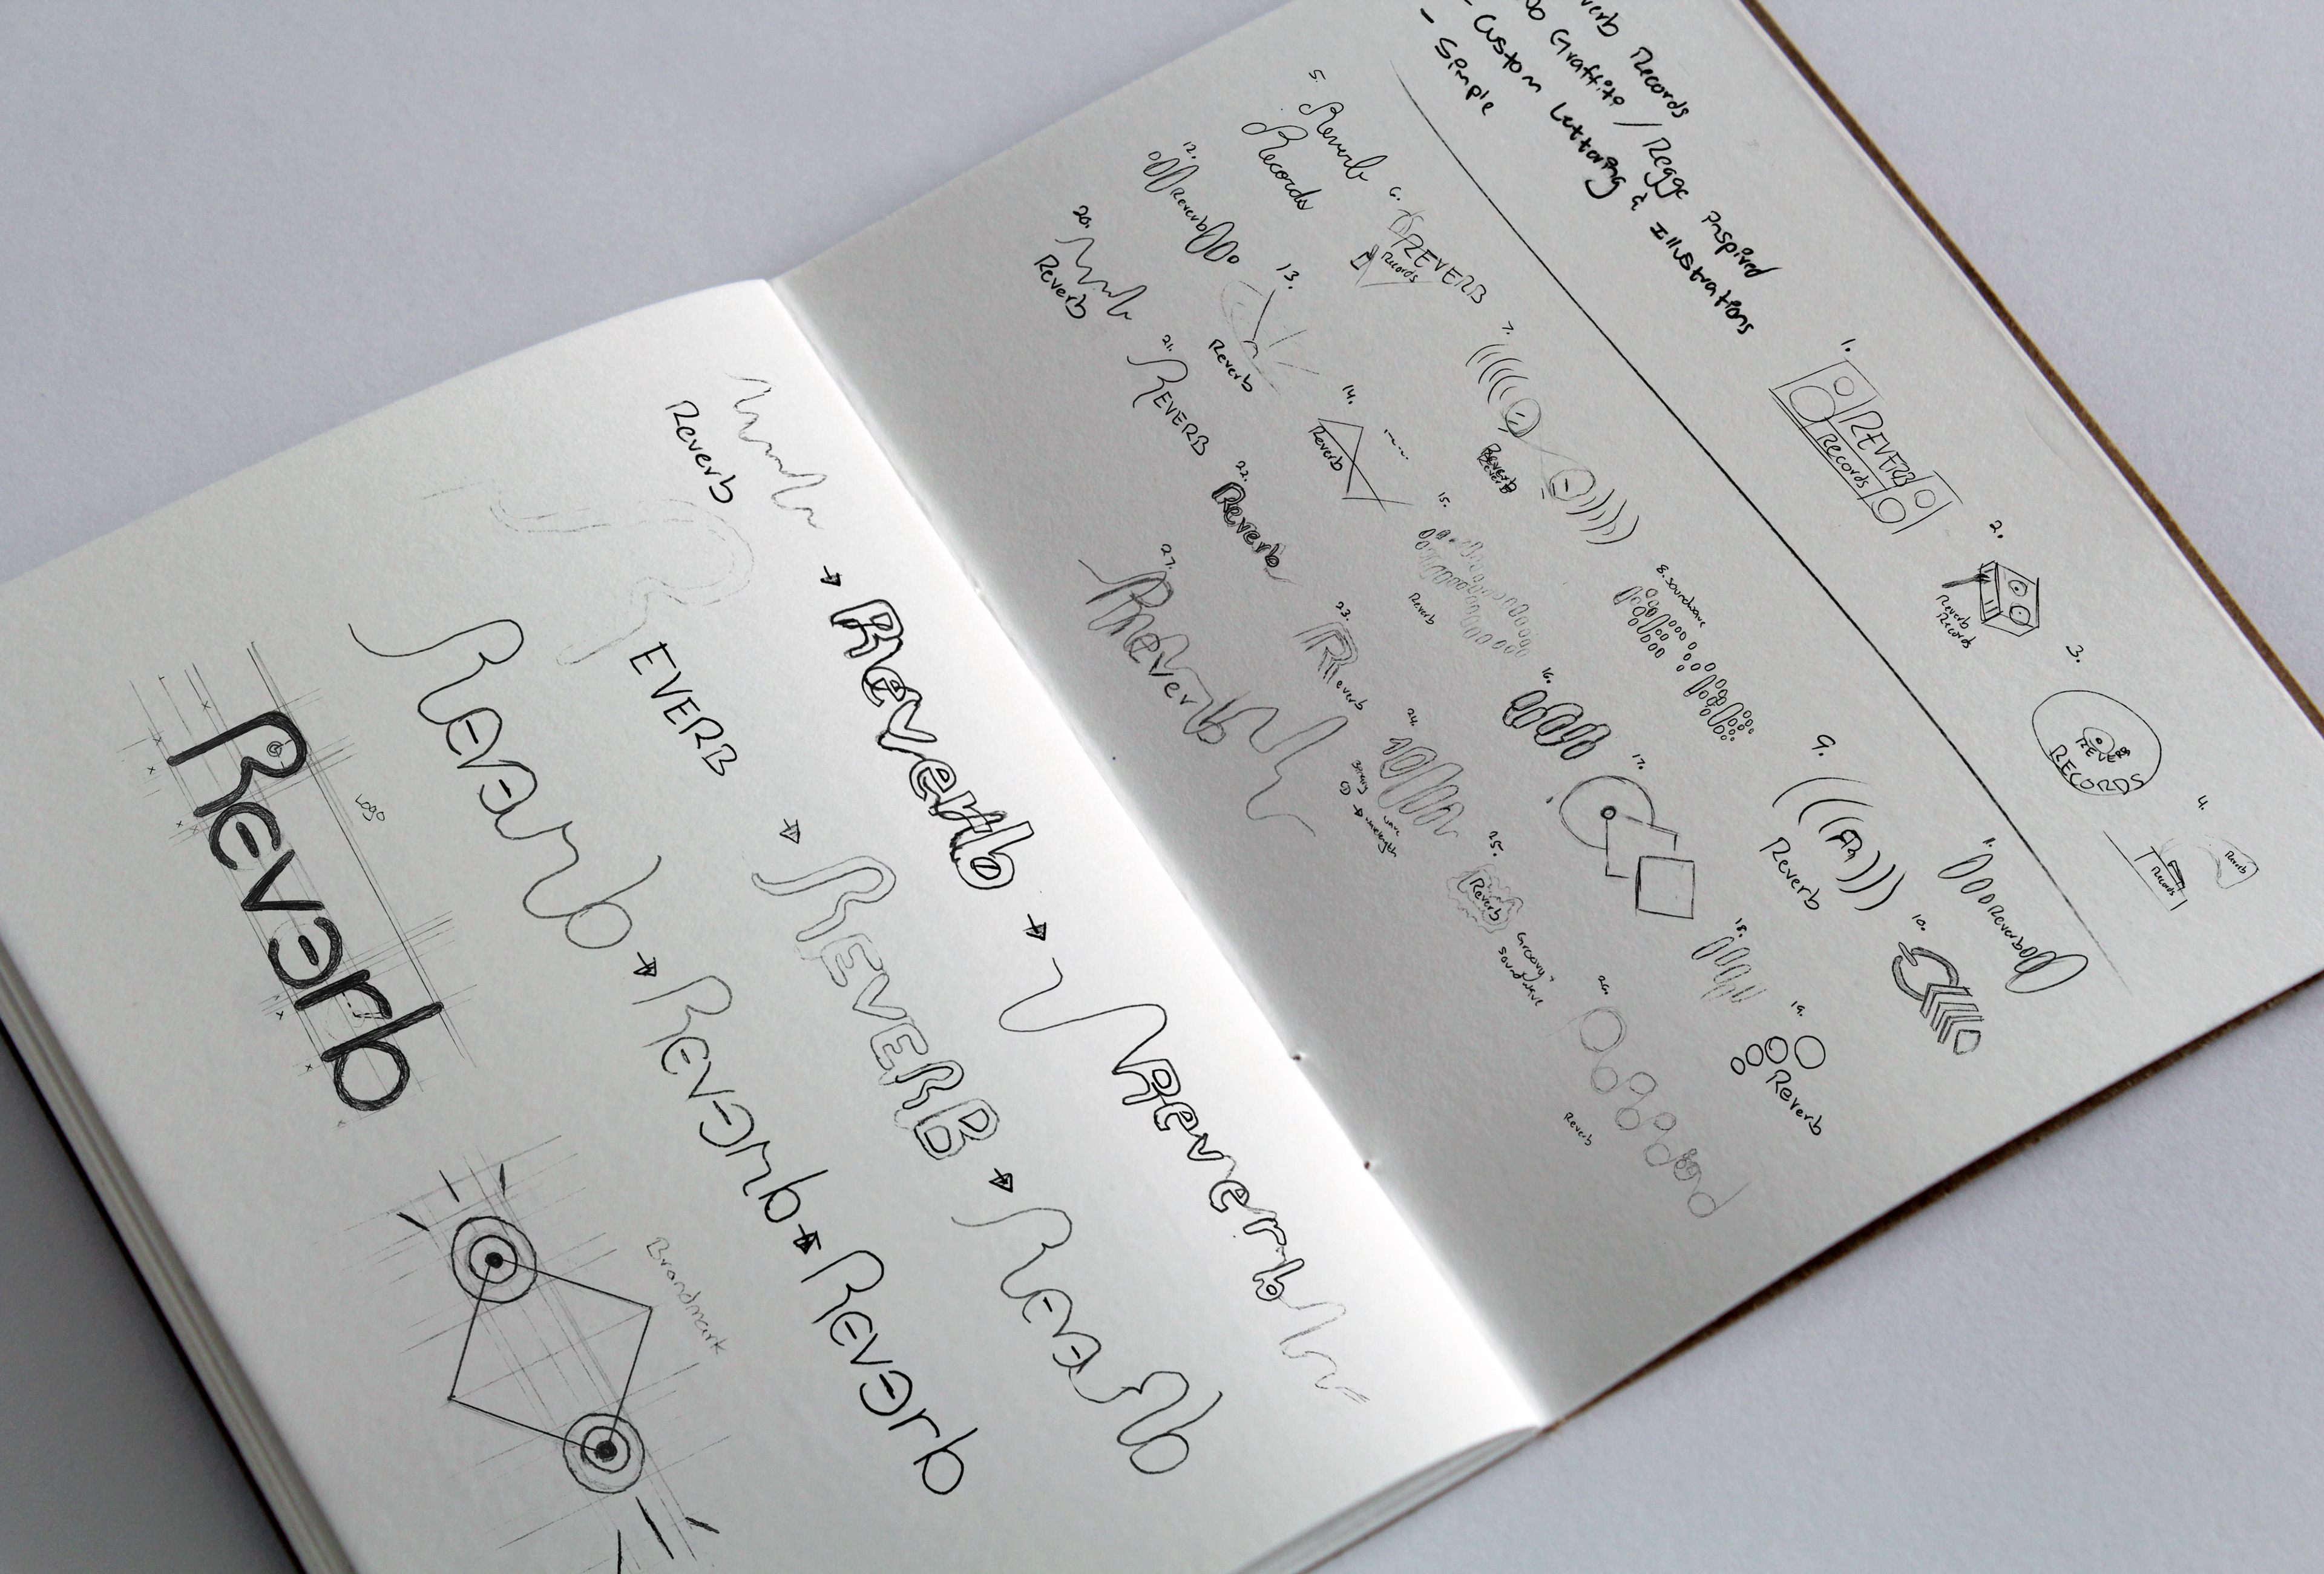 verb Records
Graffiti / Regge Inspired
- Custom Lettering & Illustrations
- Simple
1.
REVERB
Records
2.
Reverb
Record
3.
REVERB
RECORDS
4.
Reverb
Records
5.
Reverb
Records
6.
REVERB
Records
7.
Reverb
8. soundwave
9.
Reverb
11.
Reverb
10.
12.
Reverb
13.
Reverb
14.
Reverb
15.
Reverb
16.
17.
18.
19.
Reverb
20.
Reverb
21.
REVERB
22.
Reverb
23.
Reverb
24.
wave
wavelength
25.
Reverb
Groovy
soundwave
26.
Reverb
27.
Reverb
Reverb
Reverb
Reverb
EVERB
REVERB
Revɘrb
Revɘrb
Revɘrb
Revɘrb
Logo
Revɘrb
Brandmark